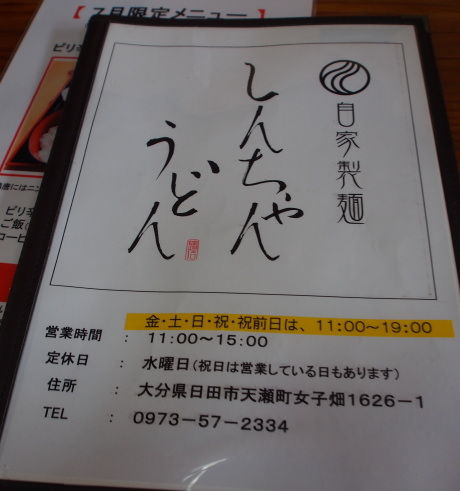 【７月限定メニュー】
ピリ辛
ピリ辛
ご飯
コーヒ
自家製麺
しんちゃん
うどん
金・土・日・祝・祝前日は、11:00～19:00
営業時間 : 11:00～15:00
定休日 : 水曜日(祝日は営業している日もあります)
住所 : 大分県日田市天瀬町女子畑1626－1
TEL : 0973－57－2334